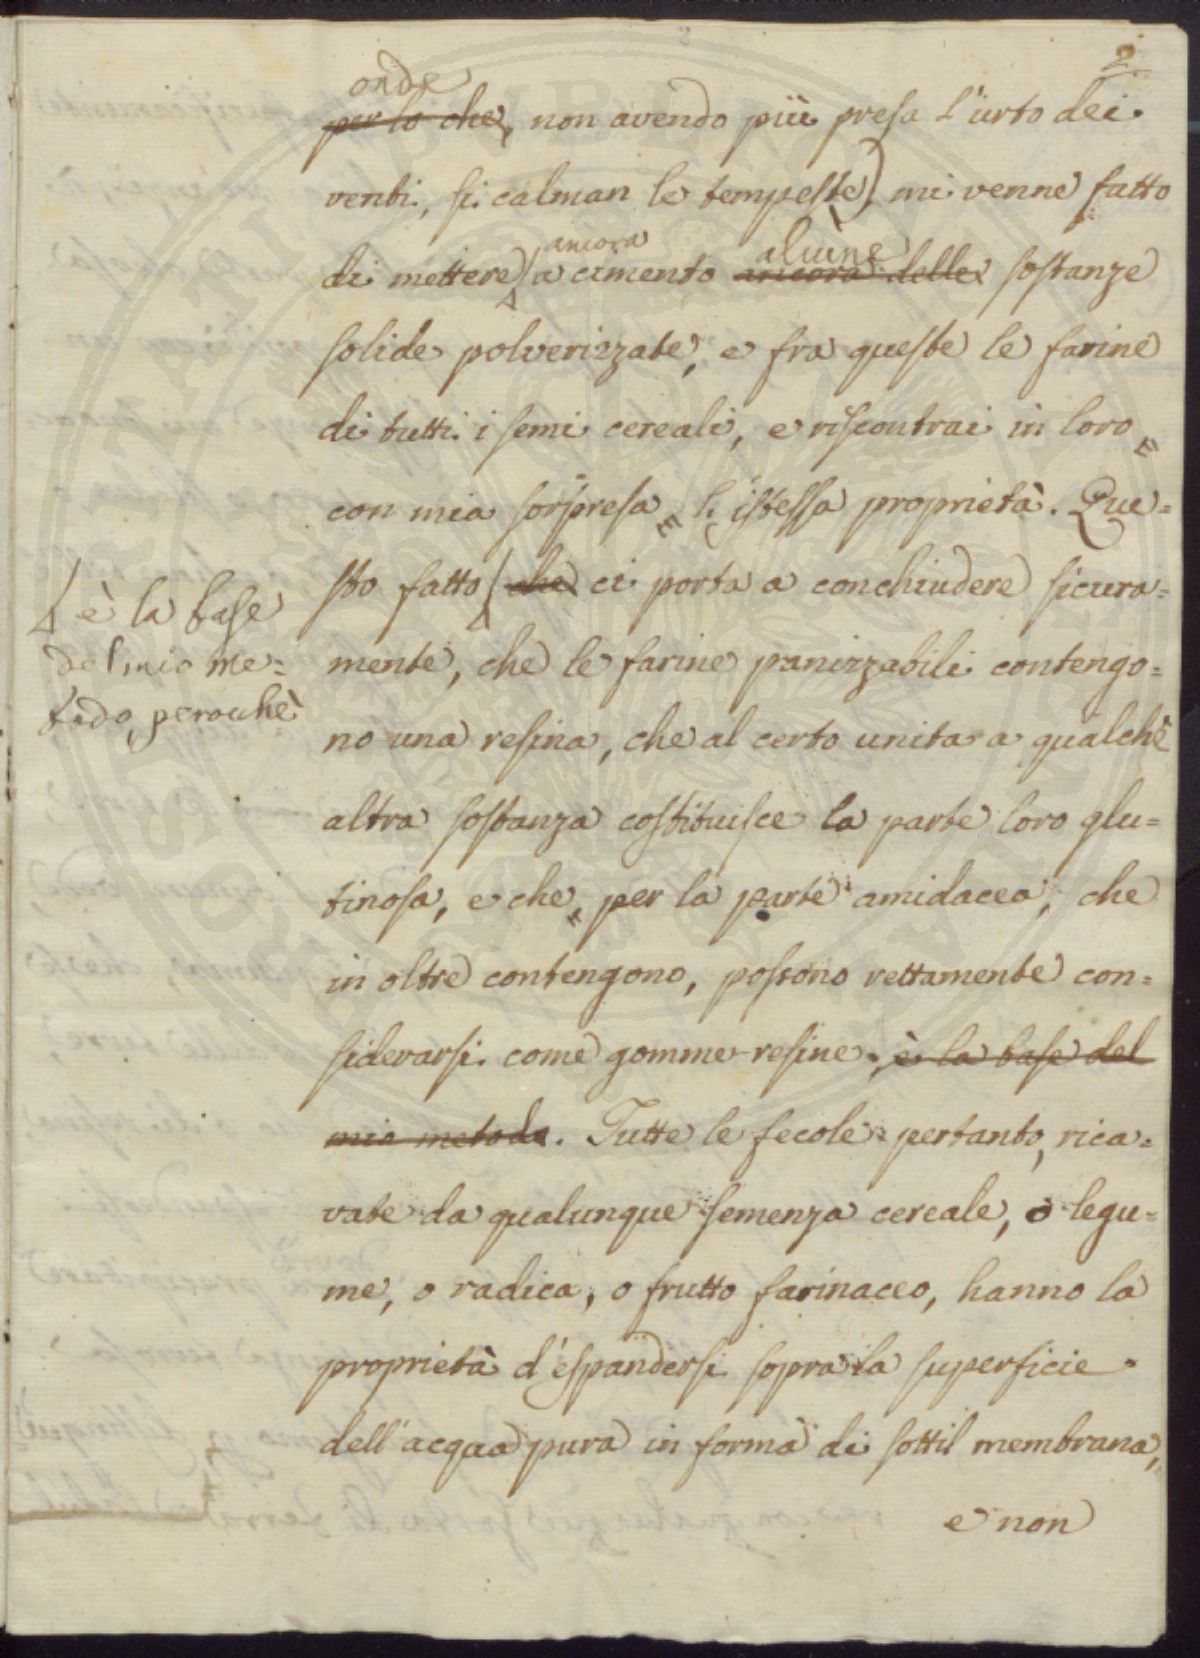 2
onde
per lo che, non avendo più presa l'urto dei
venti, si calman le tempeste) mi venne fatto
di mettere ancora a cimento alcune ancora delle sostanze
solide polverizzate, e fra queste le farine
di tutti i semi cereali, e riscontrai in loro
con mia sorpresa l'istessa proprietà. Que=
sto fatto che ci porta a conchiudere sicura=
è la base
del mio me=
todo, perocchè
mente, che le farine panizzabili contengo=
no una resina, che al certo unita a qualche
altra sostanza costituisce la parte loro glu=
tinosa, e che, per la parte amidacea, che
in oltre contengono, possono rettamente con=
siderarsi come gomme-resine, è la base del
mio metodo. Tutte le fecole pertanto, rica=
vate da qualunque semenza cereale, o legu=
me, o radica, o frutto farinaceo, hanno la
proprietà d'espandersi sopra la superficie
dell'acqua pura in forma di sottil membrana,
e non